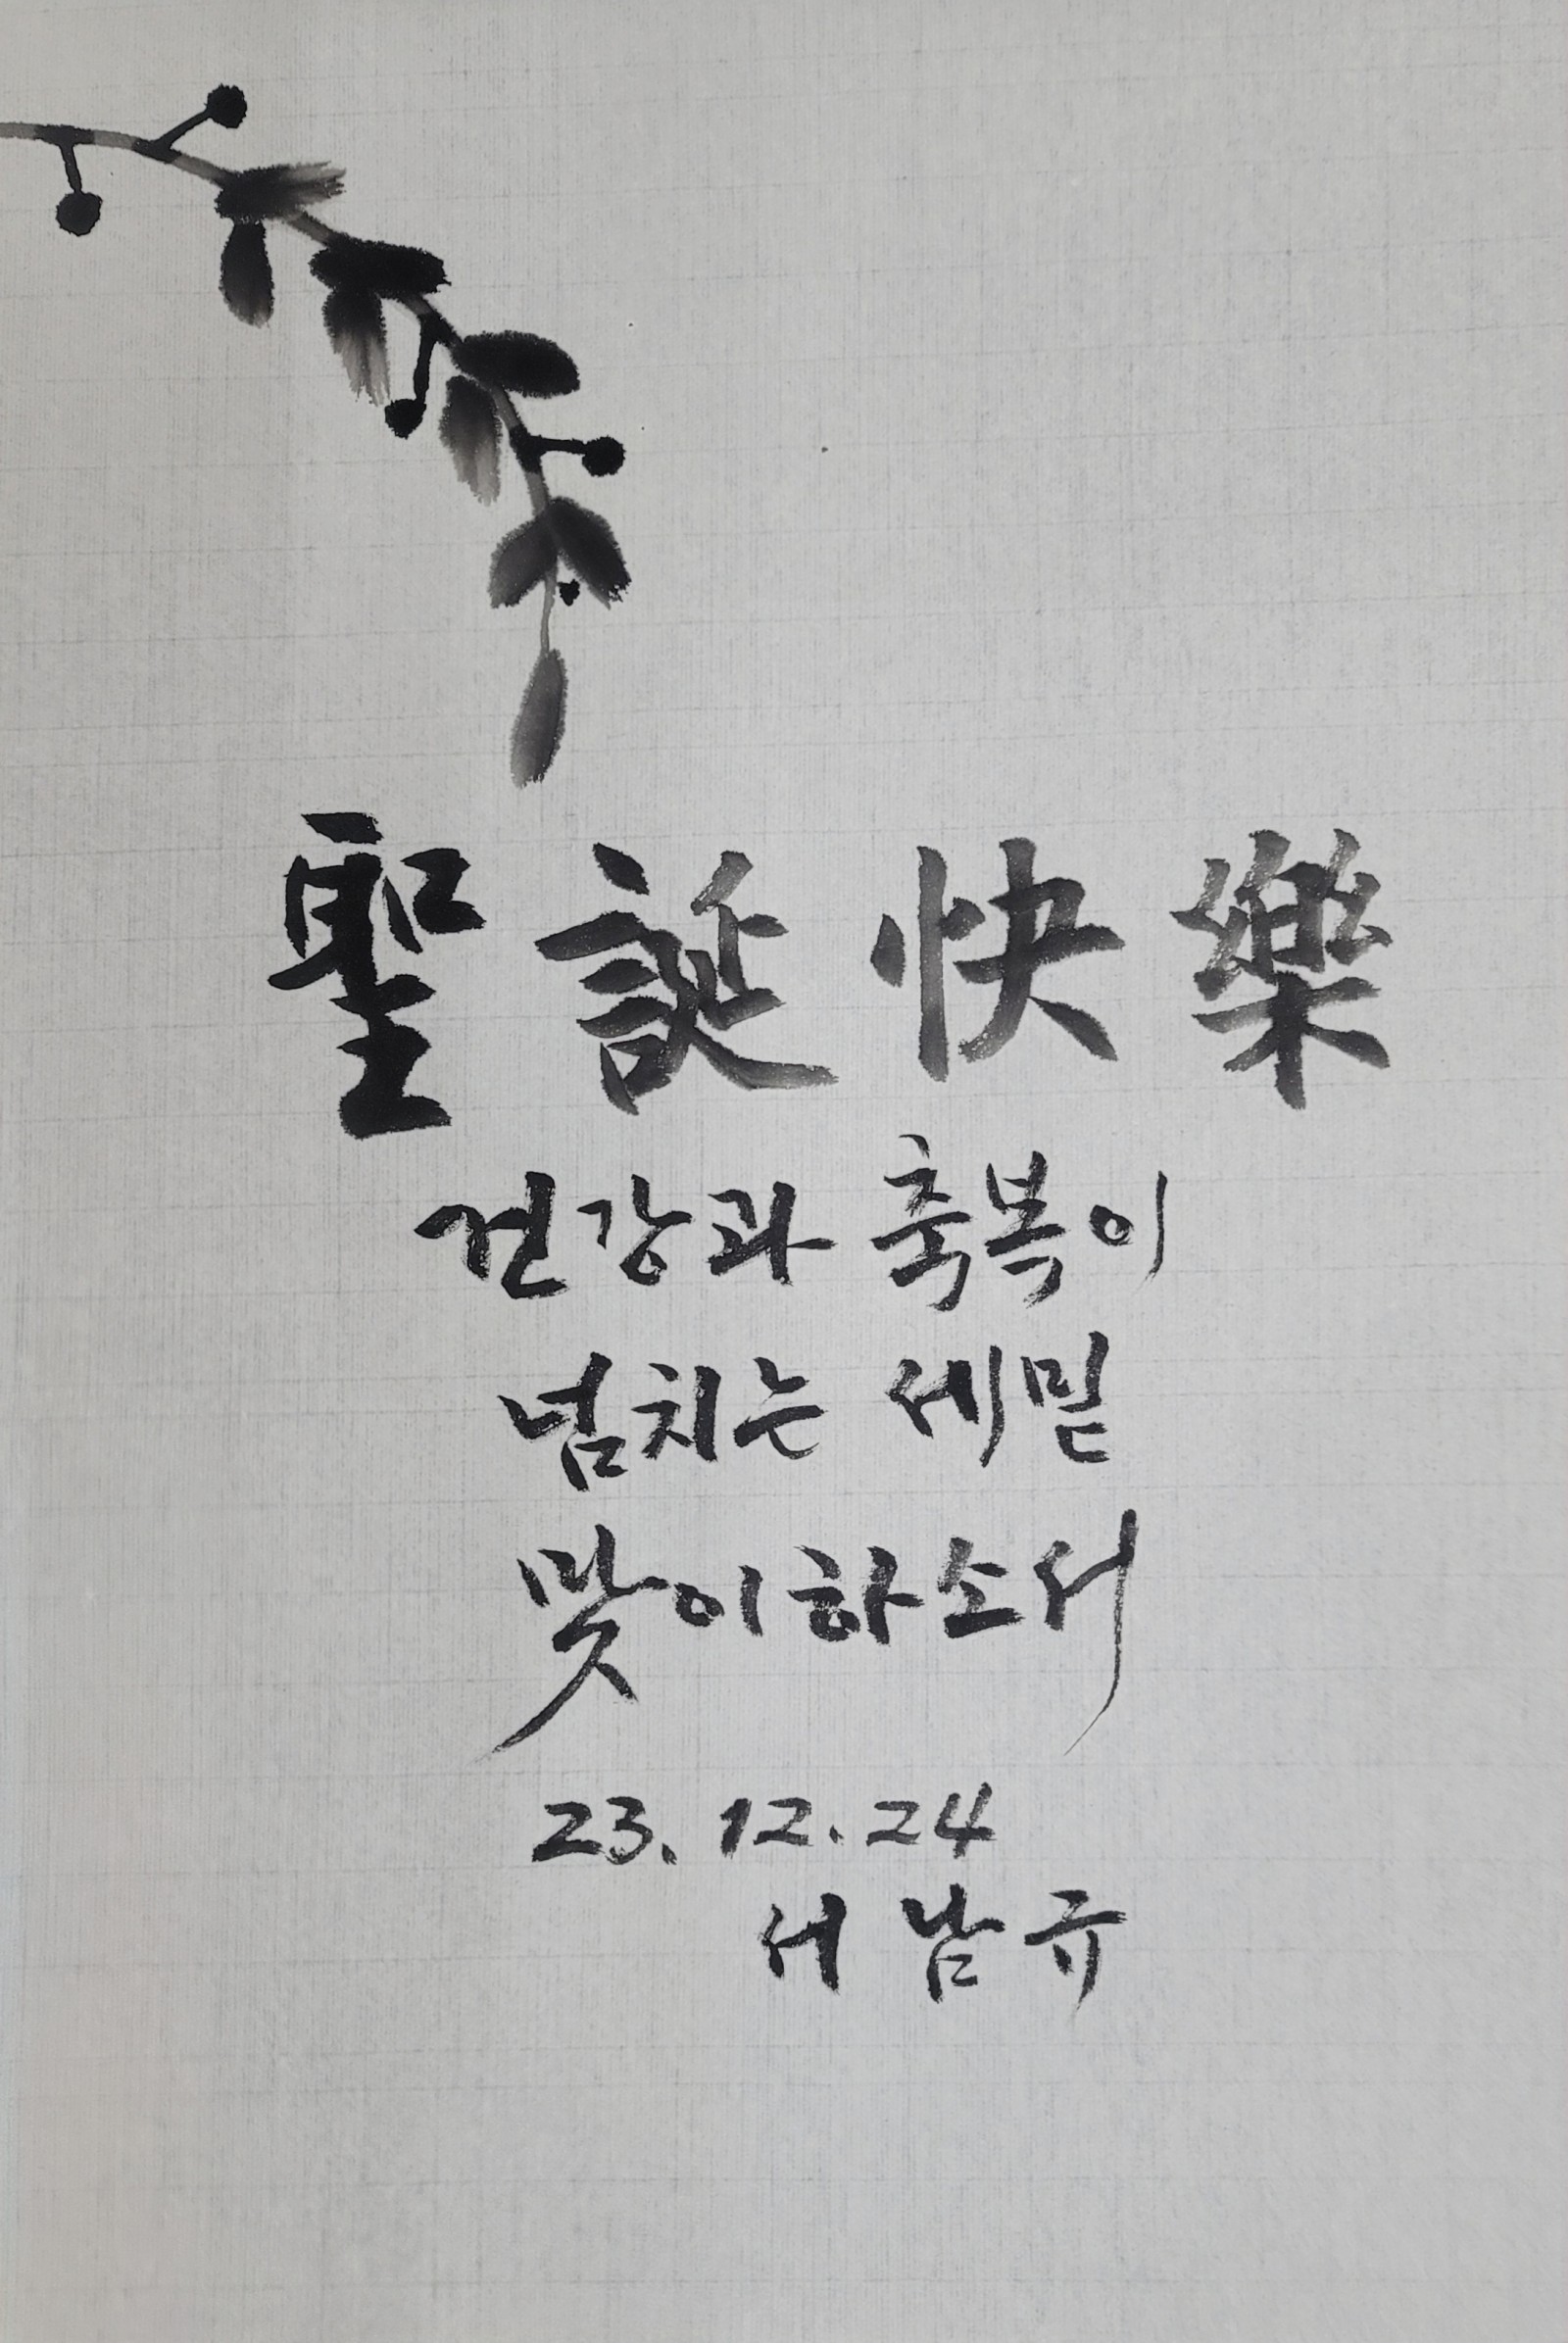 聖誕快樂
건강과 축복이
넘치는 세밑
맞이하소서
23. 12. 24
서남규